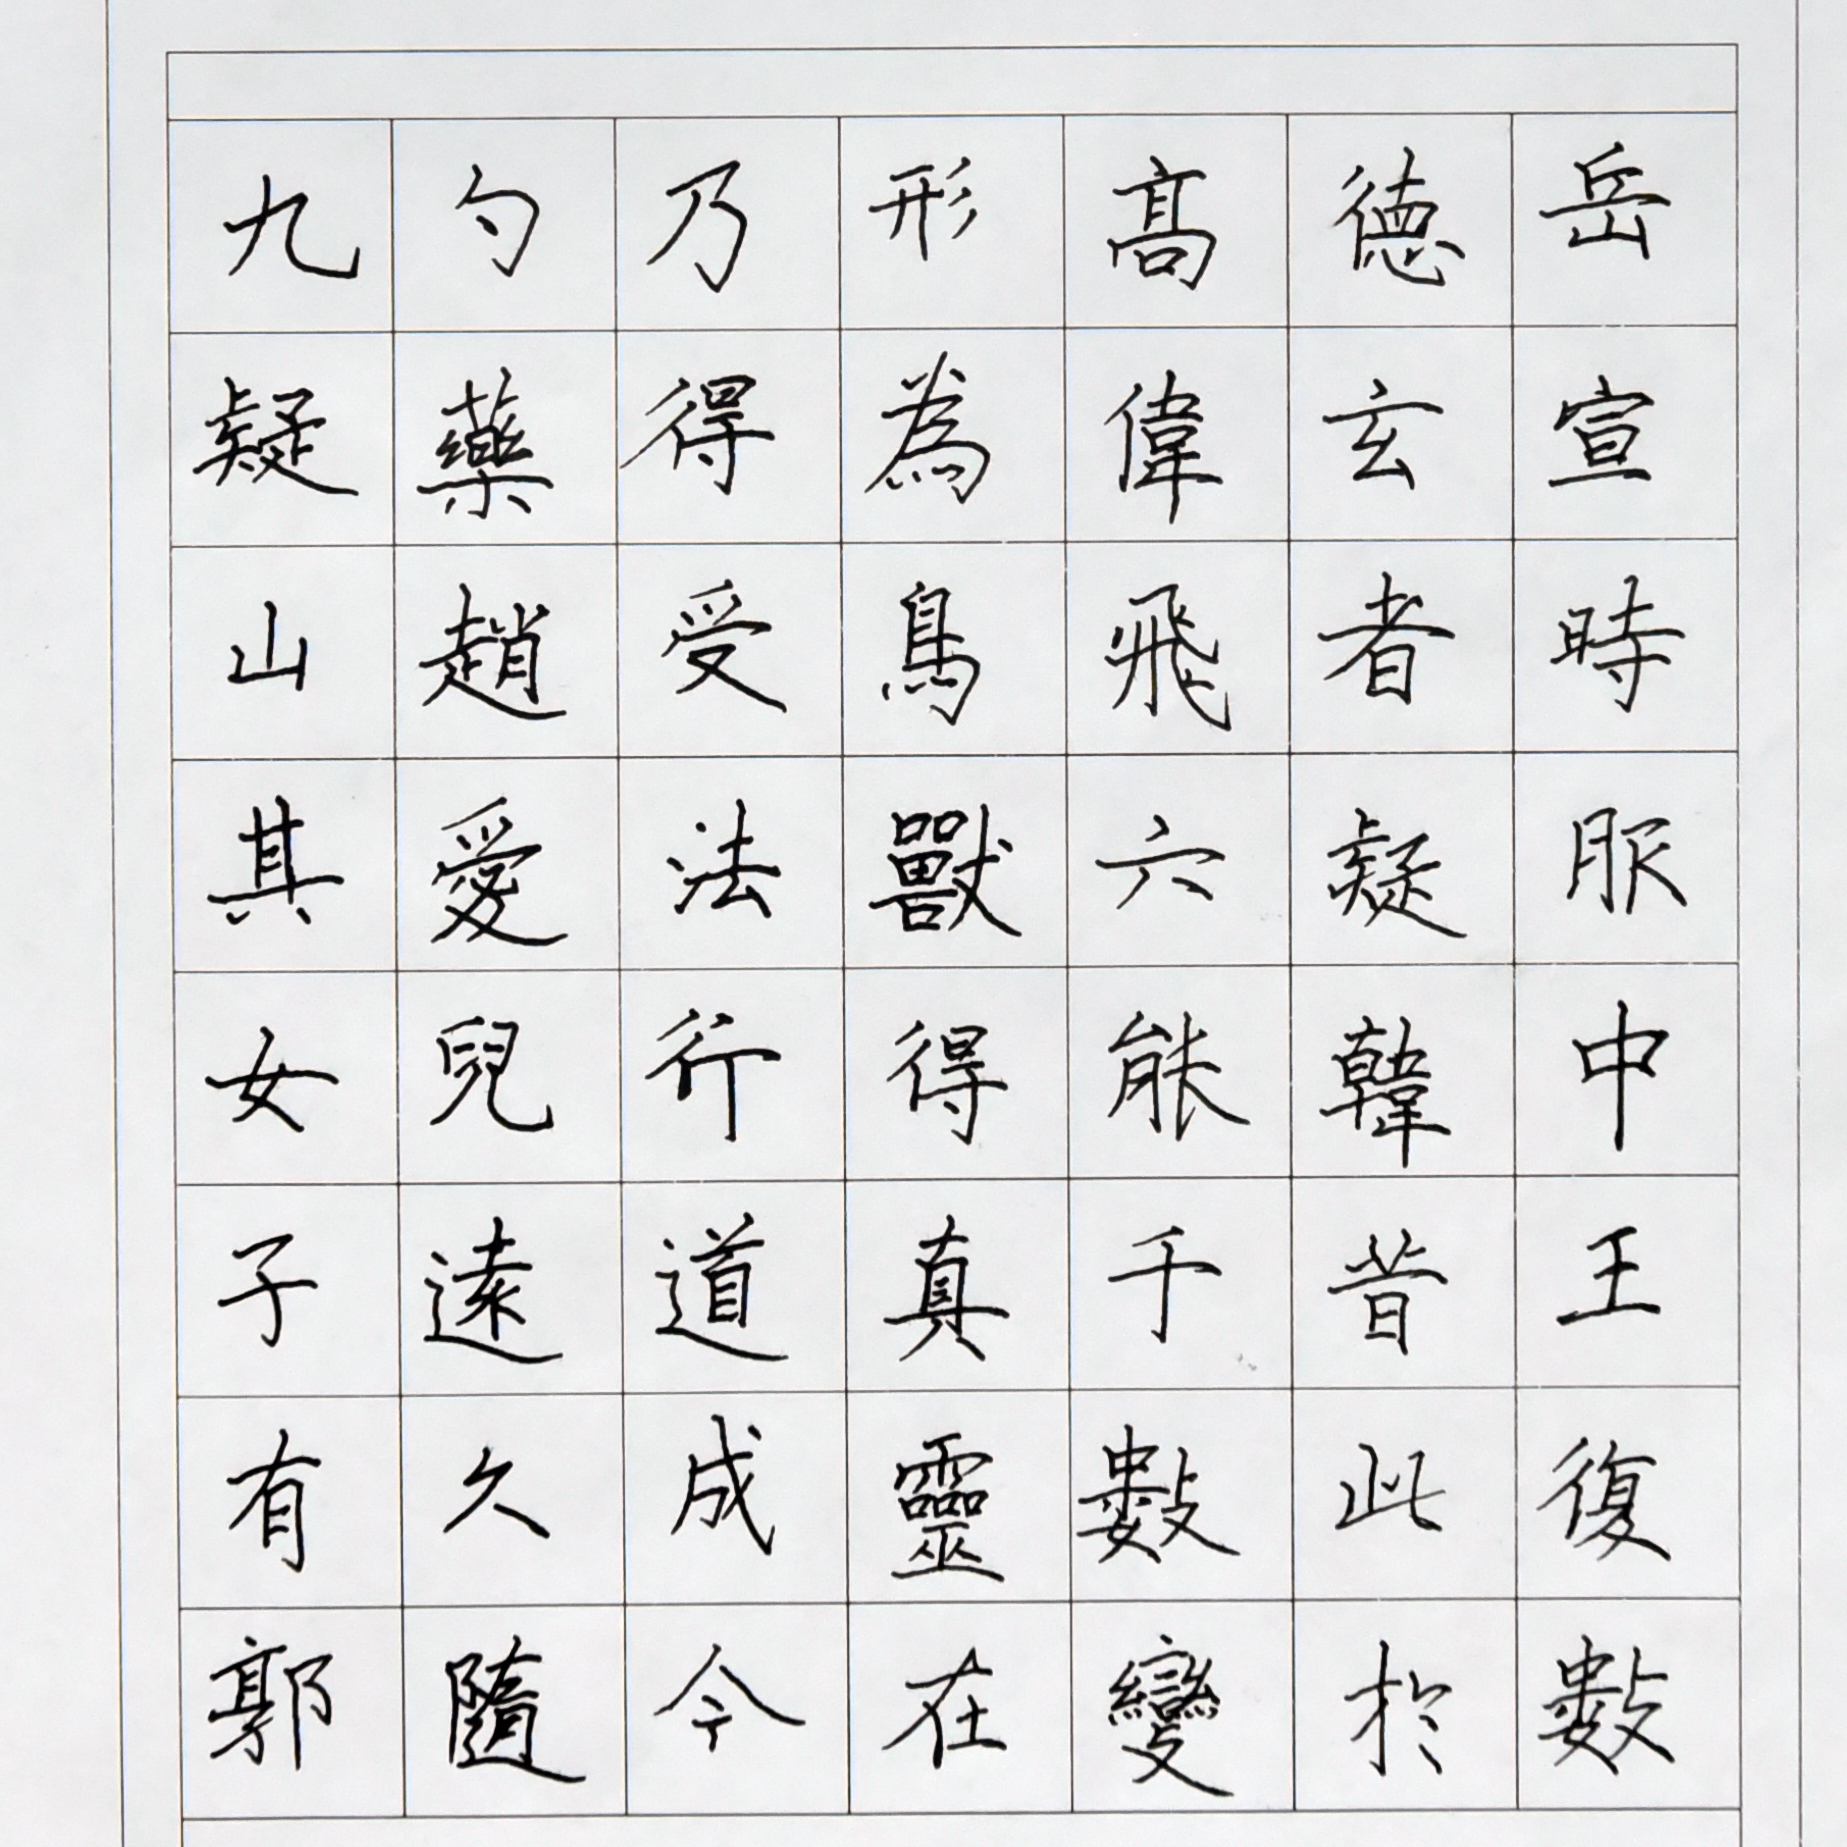 岳宣時服中王復數
德玄者疑韓昔此於
高偉飛六能千數變
形為鳥獸得真靈在
乃得受法行道成今
勺藥趙愛兒遠久隨
九疑山其女子有郭